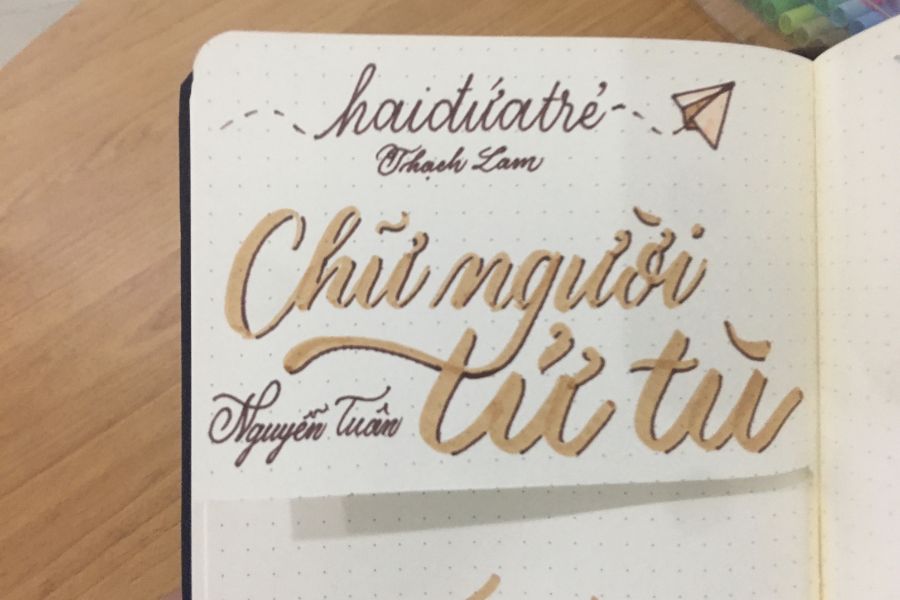 hai đứa trẻ
Thạch Lam
Chữ người
tử tù
Nguyễn Tuân